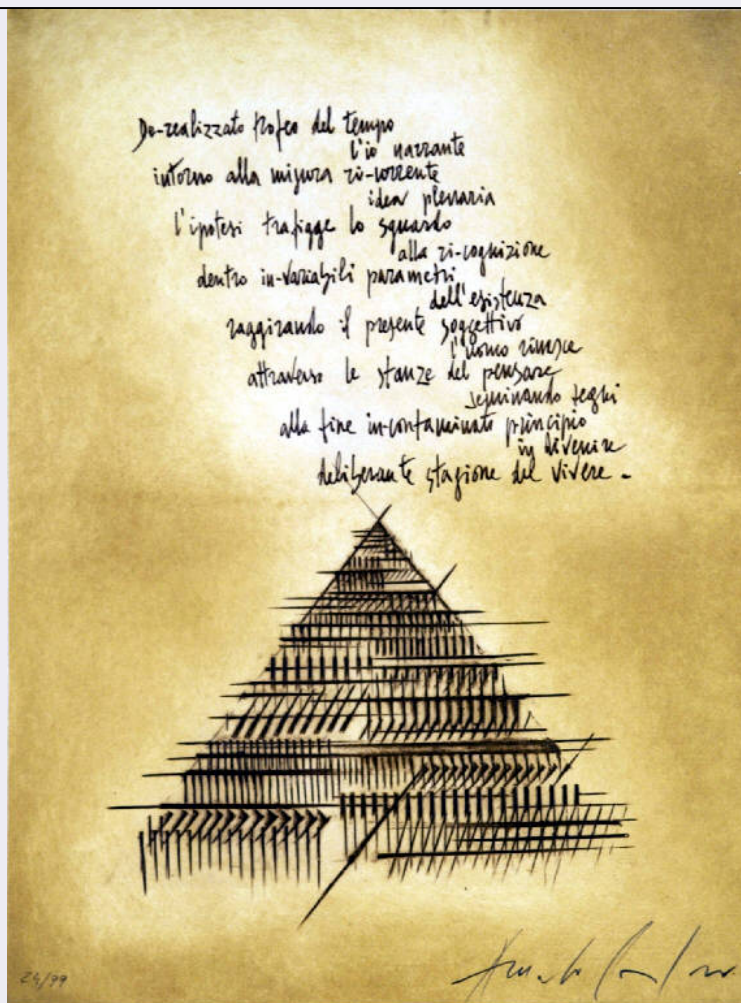 De-realizzato trofeo del tempo
l'io narrante
intorno alla misura ri-corrente
idea plenaria
l'ipotesi trafigge lo sguardo
alla ri-cognizione
dentro in-variabili parametri
dell'esistenza
raggirando il presente soggettivo
l'uomo rinasce
attraverso le stanze del pensare
seminando segni
alla fine in-contaminato principio
in divenire
deliberante stagione del vivere -
24/99